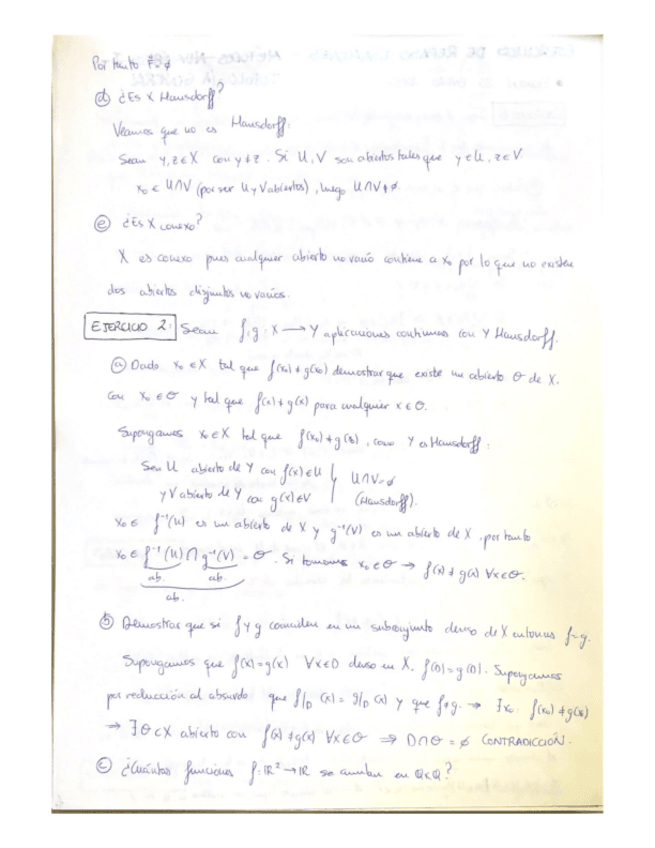 Por tanto F = ∅
ⓓ ¿Es X Hausdorff?
Veamos que no es Hausdorff:
Sean y, z ∈ X con y ≠ z. Si U, V son abiertos tales que y ∈ U, z ∈ V
x₀ ∈ U∩V (por ser U y V abiertos), luego U∩V ≠ ∅.
ⓔ ¿Es X conexo?
X es conexo pues cualquier abierto no vacío contiene a x₀ por lo que no existen
dos abiertos disjuntos no vacíos.
EJERCICIO 2: Sean f, g : X → Y aplicaciones continuas con Y Hausdorff.
ⓐ Dado x₀ ∈ X tal que f(x₀) ≠ g(x₀) demostrar que existe un abierto θ de X.
con x₀ ∈ θ y tal que f(x) ≠ g(x) para cualquier x ∈ θ.
Supongamos x₀ ∈ X tal que f(x₀) ≠ g(x₀), como Y es Hausdorff:
Sea U abierto de Y con f(x) ∈ U
y V abierto de Y con g(x) ∈ V
U∩V = ∅
(Hausdorff).
x₀ ∈ f⁻¹(U) es un abierto de X y g⁻¹(V) es un abierto de X, por tanto
x₀ ∈ f⁻¹(U) ∩ g⁻¹(V) = θ. Si tomamos x₀ ∈ θ → f(x) ≠ g(x) ∀x ∈ θ.
ab. ab.
ab.
ⓑ Demostrar que si f y g coinciden en un subconjunto denso de X entonces f = g.
Supongamos que f(x) = g(x) ∀x ∈ D denso en X. f(D) = g(D). Supongamos
por reducción al absurdo que f|D (x) = g|D (x) y que f ≠ g. → ∃x₀ : f(x₀) ≠ g(x₀)
⇒ ∃θ ⊂ X abierto con f(x) ≠ g(x) ∀x ∈ θ ⇒ D∩θ = ∅ CONTRADICCIÓN.
ⓒ ¿Cuántas funciones f: ℝ² → ℝ se anulan en ℚxℚ?